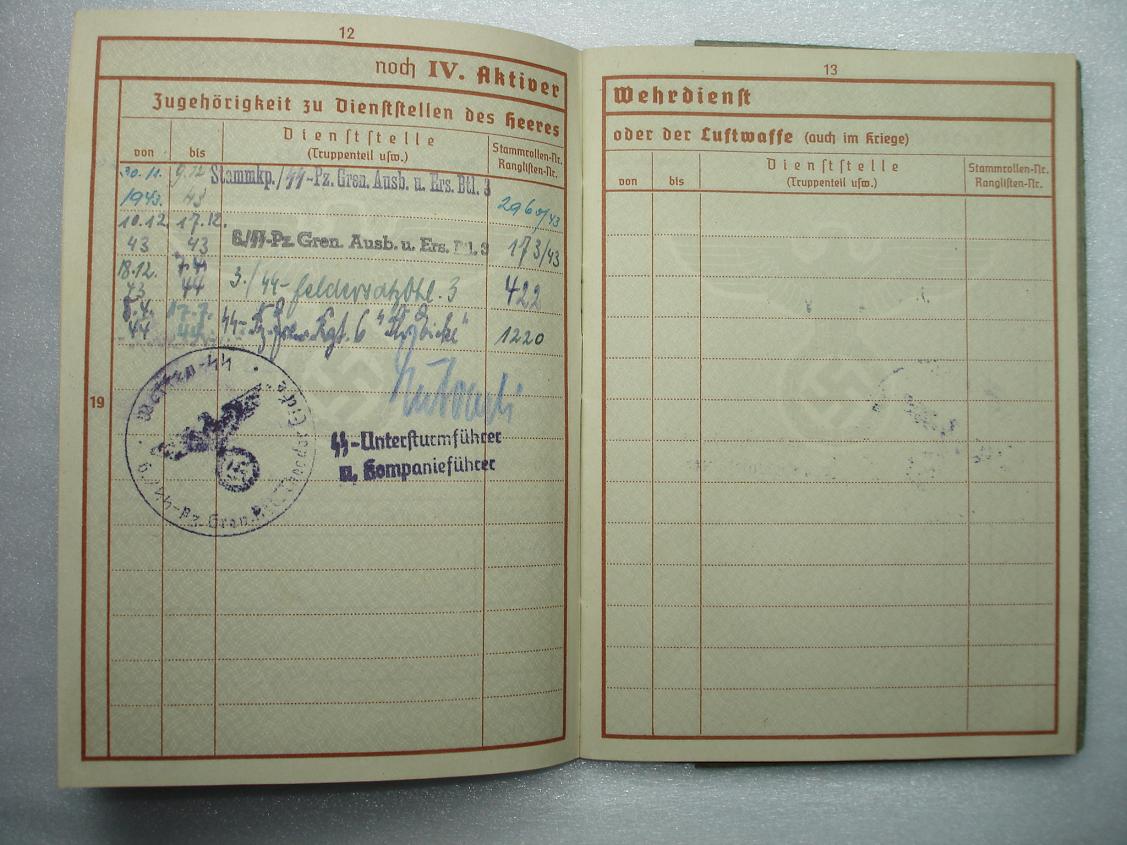 12
noch IV. Aktiver
Zugehörigkeit zu Dienststellen des Heeres
von
bis
Dienststelle
(Truppenteil usw.)
Stammrollen-Nr.
Ranglisten-Nr.
30.11. 1943. 9.12 43 Stammkp./SS-Pz. Gren. Ausb. u. Ers. Btl. 3 2960/43
10.12 43 17.12. 43 6./SS-Pz. Gren. Ausb. u. Ers. Btl. 3 173/43
18.12. 43 7.4. 44 3./SS-Feldersatzbtl. 3 422
8.4. 44 17.7. 44 SS-Pz. Gren. Rgt. 6 1220
19
Waffen-SS
6./SS-Pz. Gren.
SS-Untersturmführer
u. Kompanieführer
13
Wehrdienst
oder der Luftwaffe (auch im Kriege)
von
bis
Dienststelle
(Truppenteil usw.)
Stammrollen-Nr.
Ranglisten-Nr.